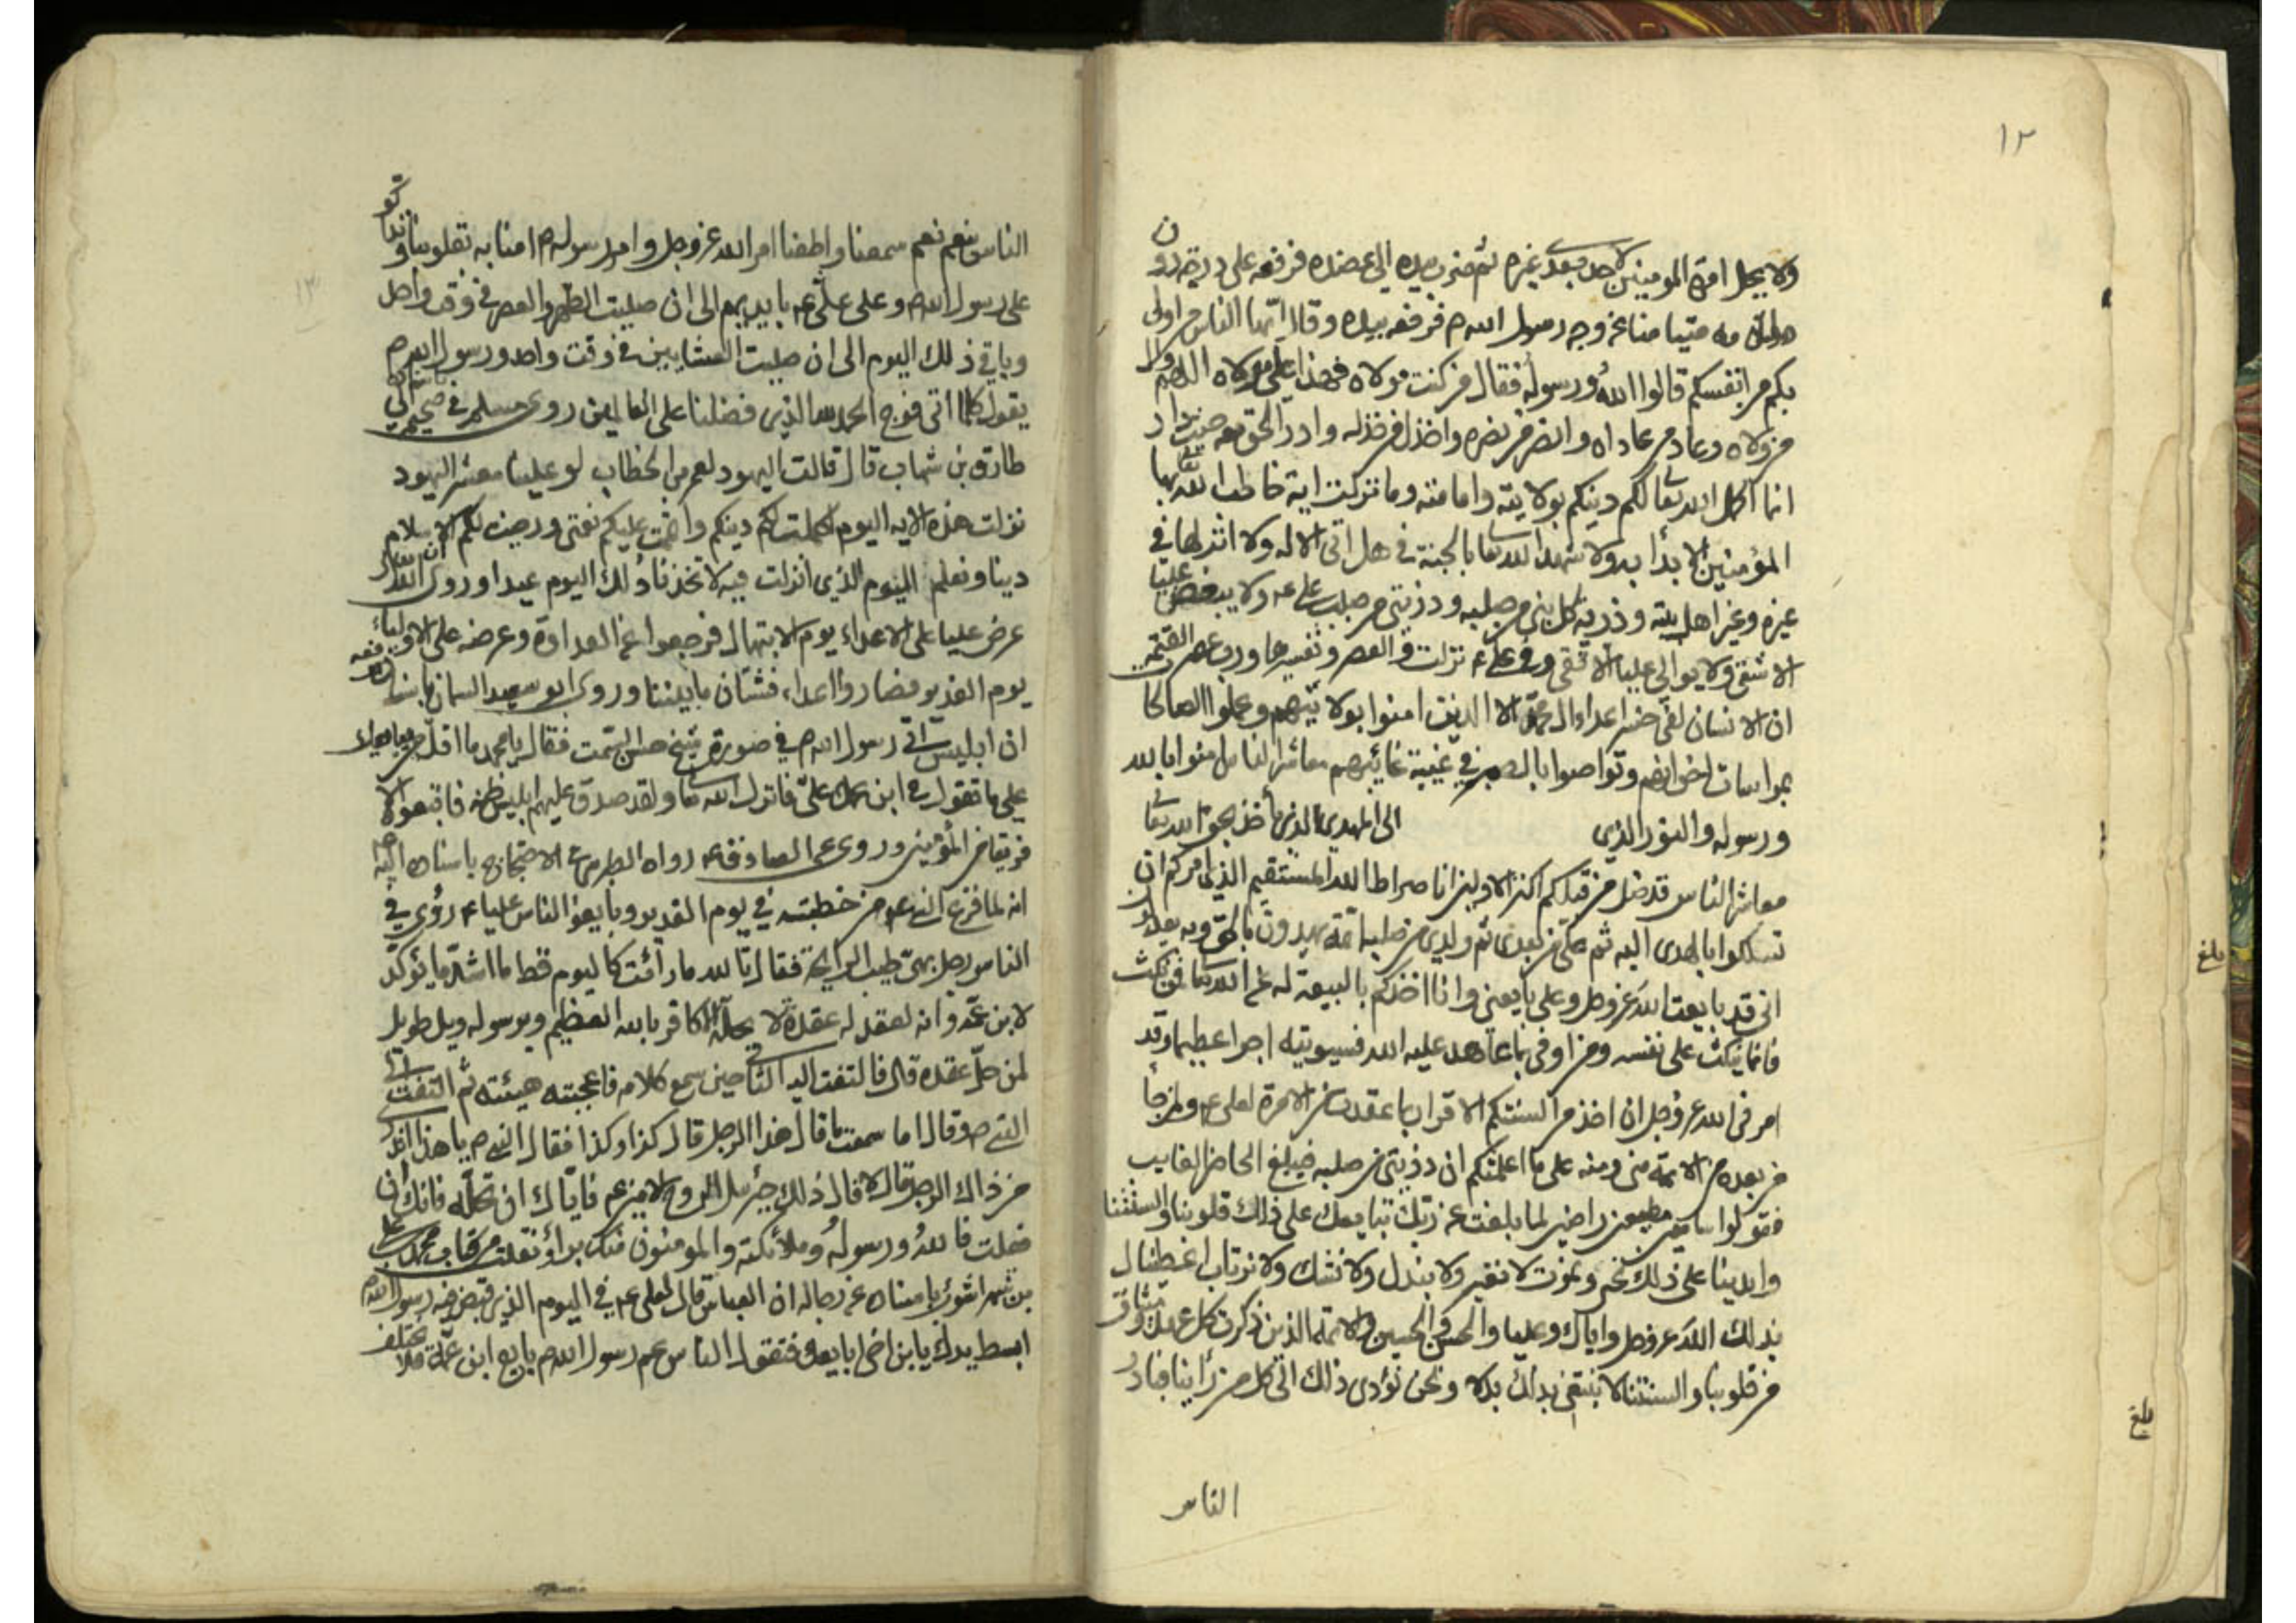 ١٢
ولا يحل امرة المومنين لاحد بعدي غيره ثم ضرب بيده الى عضده فرفعه على درجة دون
مقامه متيامنا عن وجه رسول الله ص فرفعه بيده وقال ايها الناس من اولى
بكم من انفسكم قالوا الله ورسوله فقال من كنت مولاه فهذا علي مولاه اللهم وال
من والاه وعاد من عاداه وانصر من نصره واخذل من خذله وادر الحق معه حيث دار
انما اكمل الله تعالى لكم دينكم بولايته وامامته وما نزلت اية خاطب الله تعالى بها
المؤمنين الا بدأ به ولا شهد الله تعالى بالجنة في هل اتى الا له ولا انزلها في
غيره وغير اهل بيته وذرية كل نبي من صلبه وذريتي من صلب علي ع ولا يبغض عليا
الا شقي ولا يوالي عليا الا تقي وفي علي ع نزلت والعصر وتفسيرها ورب عصر القيمة
ان الانسان لفي خسر اعداء ال محمد الا الذين امنوا بولايتهم وعملوا الصالحات
بمواسات اخوانهم وتواصوا بالصبر في غيبة غائبهم معاشر الناس امنوا بالله
ورسوله والنور الذي الى المهدي الذي ياخذ بحق الله تعالى
معاشر الناس قد ضل من قبلكم اكثر الاولين انا صراط الله المستقيم الذي امركم ان
تسلكوا بالهدى اليه ثم علي من بعدي ثم ولدي من صلبه ائمة يهدون بالحق وبه يعدلون
اني قد بايعت الله عز وجل وعلي بايعني وانا اخذكم بالبيعة له عن الله تعالى فمن نكث
فانما ينكث على نفسه ومن اوفى بما عاهد عليه الله فسيوتيه اجرا عظيما وقد
امرني الله عز وجل ان اخذ من السنتكم الاقرار بما عقدت من الامرة لعلي ع ولمن جاء
من بعده من الائمة مني ومنه على ما اعلمتكم ان ذريتي من صلبه فيبلغ الحاضر الغايب
فقولوا سامعين مطيعين راضين لما بلغت عن ربك نبايعك على ذلك قلوبنا والسنتنا
وايدينا على ذلك نحيى ونموت لا نغير ولا نبدل ولا نشك ولا نرتاب اعطينا
بذلك الله عز وجل واياك وعليا والحسن والحسين والائمة الذين ذكرت كل عهد وميثاق
من قلوبنا والسنتنا لا نبتغي بذلك بدلا ونحن نؤدي ذلك الى كل من رأينا فناد
الناس
الناس نعم نعم سمعنا واطعنا امر الله عز وجل وامر رسوله ص امنا به بقلوبنا وتداكوا
على رسول الله ص وعلى علي ع بايديهم الى ان صليت الظهر والعصر في وقت واحد
وباقي ذلك اليوم الى ان صليت العشاءين في وقت واحد ورسول الله ص
يقول كلما اتى فوج الحمد لله الذي فضلنا على العالمين روى مسلم في صحيحه باسناده الى
طارق بن شهاب قال قالت اليهود لعمر بن الخطاب لو علينا معشر اليهود
نزلت هذه الاية اليوم اكملت لكم دينكم واتممت عليكم نعمتي ورضيت لكم الاسلام
دينا ونعلم اليوم الذي انزلت فيه لاتخذنا ذلك اليوم عيدا وروي ان الله تعالى
عرض عليا على الاعداء يوم الابتهال فرجعوا عن العداوة وعرضه على الاولياء
يوم الغدير فصاروا اعداء فشتان ما بينهما وروى ابو سعيد السمان باسناده رفعه
ان ابليس اتى رسول الله ص في صورة شيخ حسن السمت فقال يا محمد ما اقل من يبايعك
على ما تقول في ابن عمك علي فانزل الله تعالى ولقد صدق عليهم ابليس ظنه فاتبعوه الا
فريقا من المؤمنين وروي عن الصادق ع رواه الطبرسي في الاحتجاج باسناده اليه
انه لما فرغ النبي ص من خطبته في يوم الغدير وبايعوا الناس عليا ع رؤي في
الناس رجل بهي طيب الرايحة فقال تالله ما رأيت كاليوم قط ما اشد ما يؤكد
لابن عمه وانه لعقد له عقدة لا يحلها الا كافر بالله العظيم وبرسوله ويل طويل
لمن حل عقده قال فالتفت اليه الثاني حين سمع كلامه فاعجبته هيئته ثم التفت الى
النبي ص وقال اما سمعت ما قال هذا الرجل قال كذا وكذا فقال النبي ص يا هذا اتدري
من ذاك الرجل قال لا قال ذلك جبرئيل الروح الامين ع فاياك ان تحله فانك ان
فعلت فالله ورسوله وملائكته والمومنون منك براء نقلت من كتاب محمد بن علي
بن شهر اشوب باسناده عن رجاله ان العباس قال لعلي ع في اليوم الذي قبض فيه رسول الله ص
ابسط يدك يا بن اخي ابايعك فتقول الناس عم رسول الله ص بايع ابن عمه فلا يختلف
١٣
بلغ
بلغ